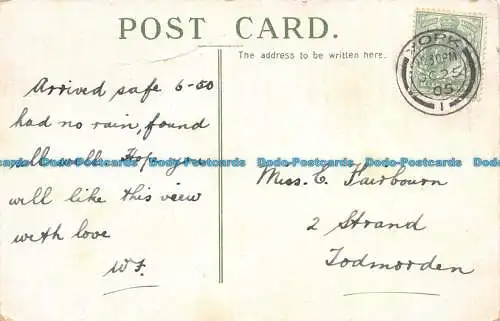 POST CARD.
The address to be written here.
YORK
SE 25
05
1
Arrived safe 6-50
had no rain, found
all well. Hope you
will like this view
with love
W F.
Miss. E. Fairbourn
2 Strand
Todmorden
Dodo-Postcards Dodo-Postcards Dodo-Postcards Dodo-Postcards Dodo-Postcards